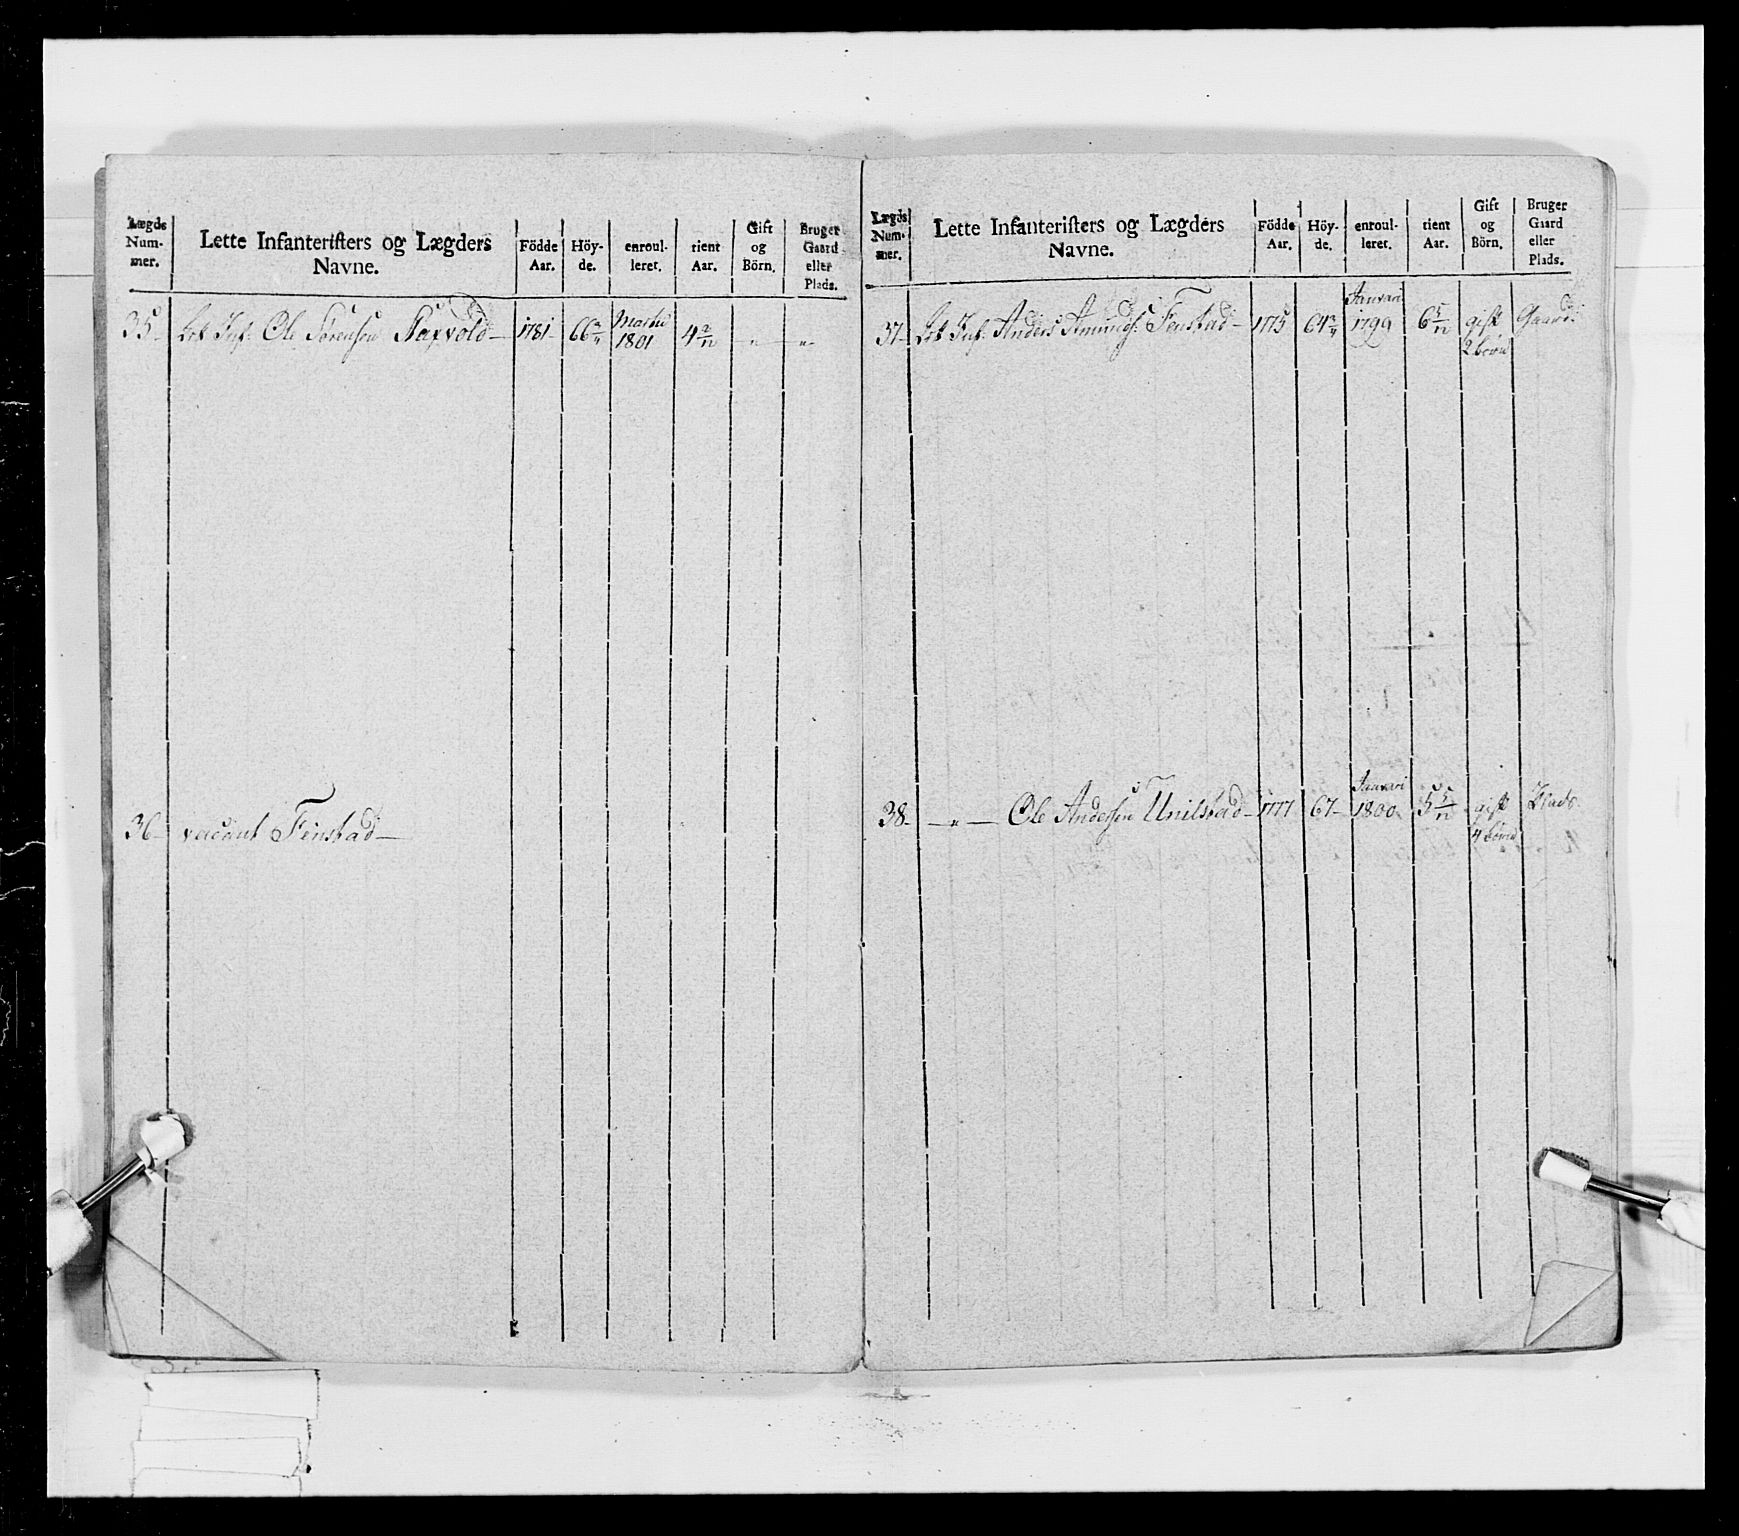 Lægds Num-mer. Lette Infanteristers og Lægders Navne. Födde Aar. Höy-de. enroul-leret. tient Aar. Gift og Börn. Bruger Gaard eller Plads.
35 Let Inf: Ole Sörensen 1781 66 Martii 1801 4 2/12 - " - "
36 vacant Finstad
Lægds Num-mer. Lette Infanteristers og Lægders Navne. Födde Aar. Höy-de. enroul-leret. tient Aar. Gift og Börn. Bruger Gaard eller Plads.
37 Let Inf: Anders Amunds: Finstad 1775 64 Januari 1799 6 5/12 gift 2 börn Gaard
38 - " - Ole Andersen 1777 67 Januari 1800 5 5/12 gift 4 börn Plads